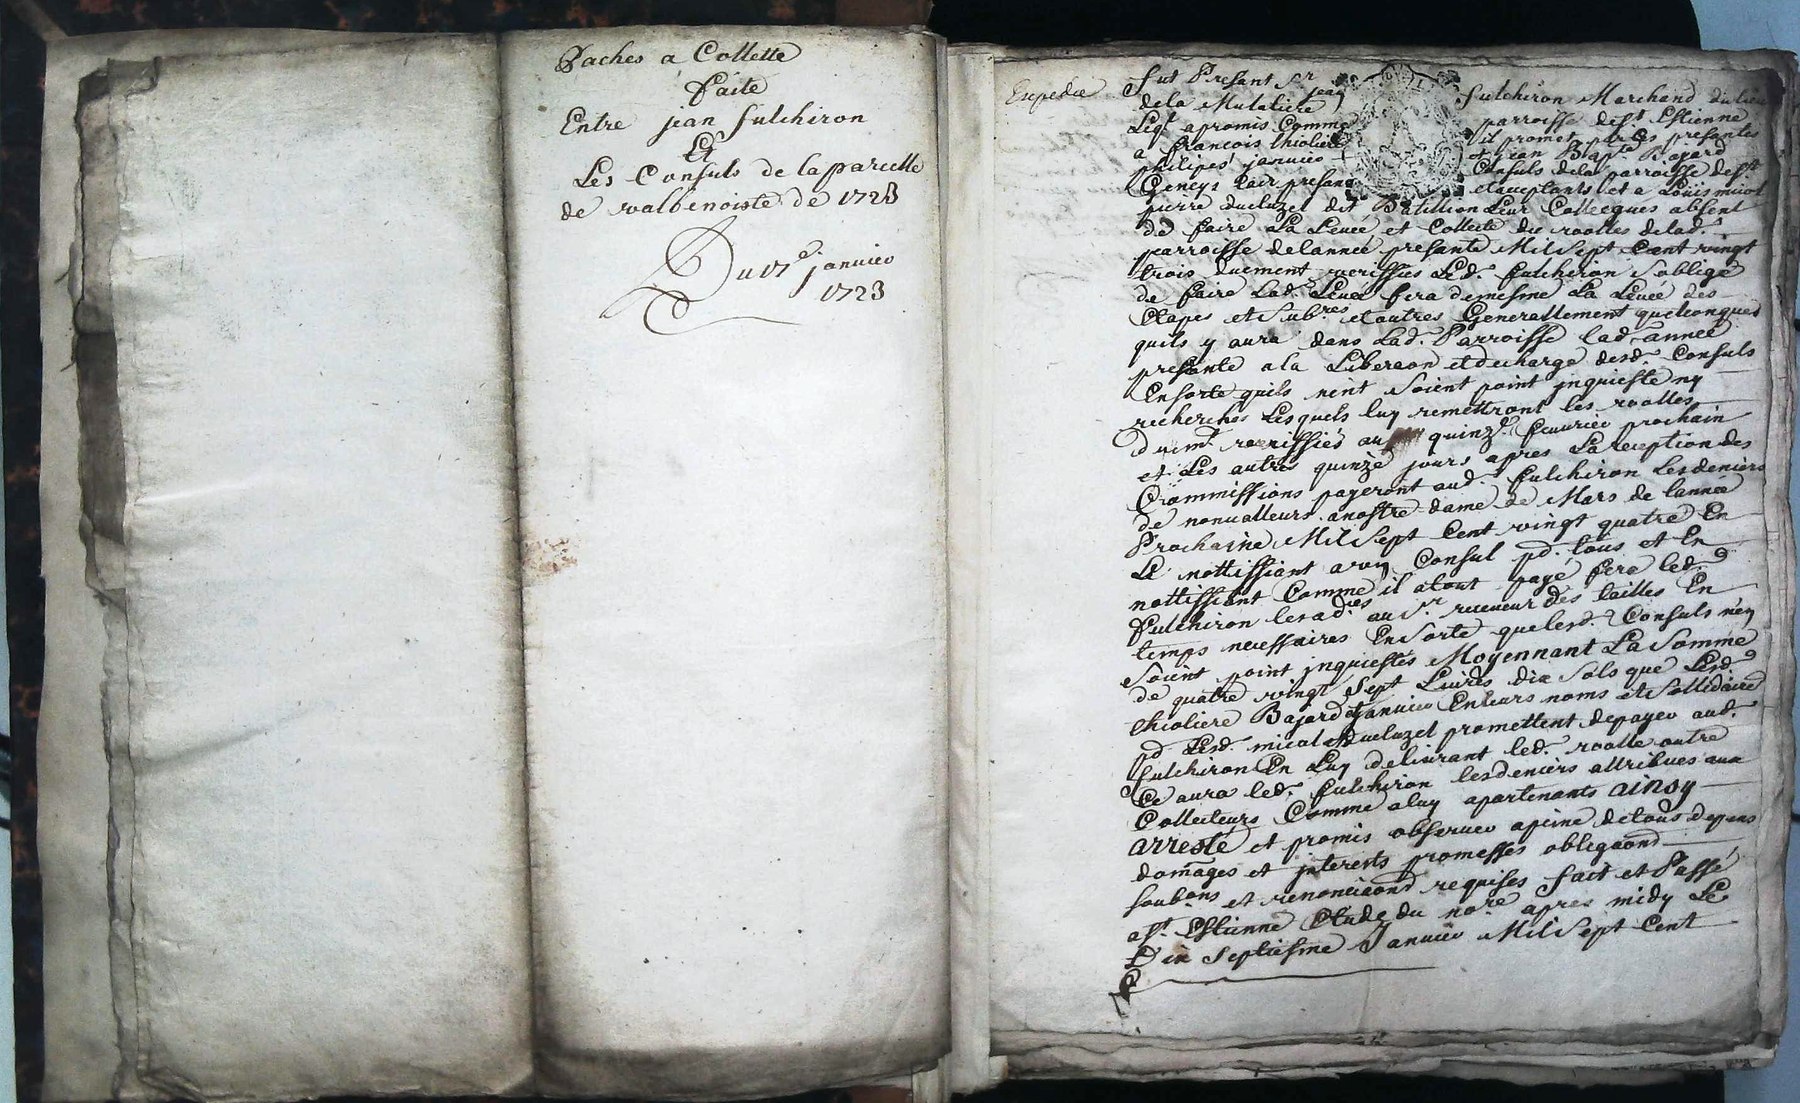 Paches a Collette
Faite
Entre jean fulchiron
Et
Les Consuls de la parcelle
de valbenoiste de 1723
Du 17e janvier
1723
Expedie
fut Presant Sr jean fulchiron Marchand du lieu
de la Mulatiere parroisse de St Estienne
Leql a promis Comme il promet par ces presantes
a francois thioliere et jean Bapte Bajard
philipes janvier Consuls de la parroisse de St
Geneys Lair presans et acceptants et a Loüis micol
pierre ducluzel dit Batillion Leur Collecques absent
de faire La Leueé et Collecte du roolles de lad.
parroisse de lanneé presante Mil Sept Cent vingt
trois duement veriffiés Led. fulchiron Soblige
de faire Lad. Leueé fera de mesme La Leueé des
Etapes et Subres et autres Generallement quelconques
quils y aura dans Lad. Parroisse lad. anneé
presante a la Liberaon et decharge desd. Consuls
En sorte quils nint Soient point jnquieste ny
recherches Lesquels luy remettront les roolles
duemt. veriffiés au quinze feuurier prochain
et Les autres quinze jours apres La reception des
Commissions payeront aud. fulchiron Les deniers
de nonualleurs a nostre dame de Mars de lanneé
Prochaine Mil Sept Cent vingt quatre En
Le nottiffiant a vn Consul pd. tous et En
nottiffiant Comme il a tout payé fera led.
fulchiron les adies au Sr receueur des tailles En
temps necessaires En Sorte que lesd. Consuls n'en
Soient point jnquiestés Moyennant La Somme
de quatre vingt Sept Liures dix Sols que Lesd.
thioliere Bajard et janvier En leurs noms et Sollidaire
pd. Lesd. micol et ducluzel promettent de payer aud.
fulchiron En Luy deliurant led. roolle outre
Ce aura led. fulchiron les deniers attribues aux
Collecteurs Comme a luy apartenants ainsy
arresté et promis obseruer a peine de tous depens
domages et jnterests promesses obligaons
soubons et renonciaons requises fait et Passé
a St. Estienne Etude du nore apres midy Le
Dix Septiesme Janvier Mil Sept Cent